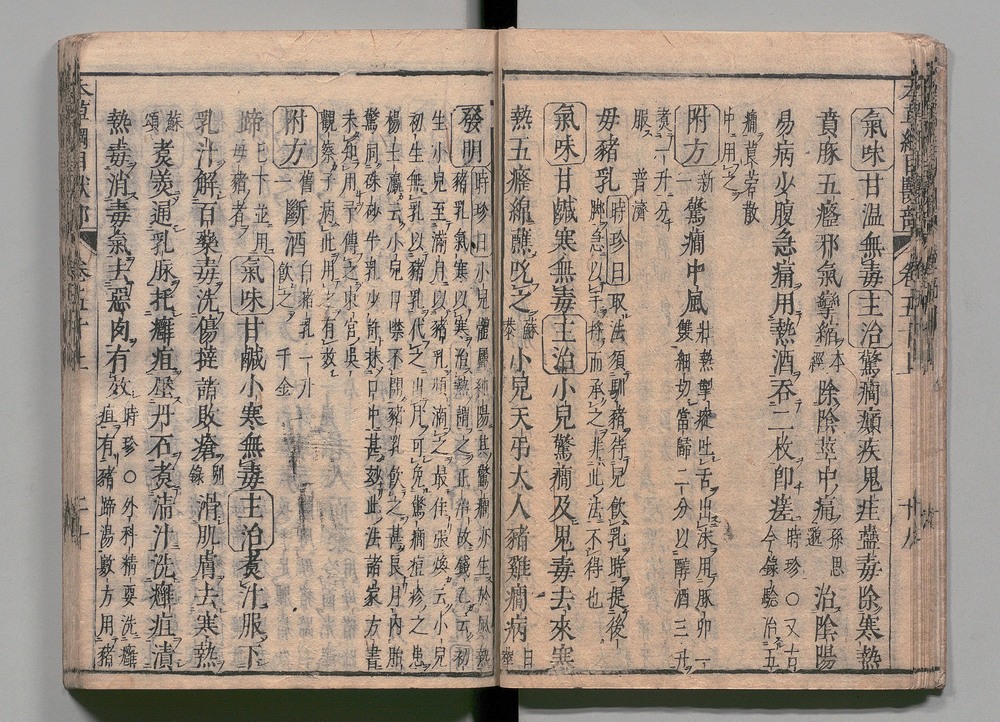 氣味甘温無毒主治驚癎癲疾鬼疰蠱毒除寒熱
賁豚五癃邪氣攣縮本經除陰莖中痛孫思邈治陰陽
易病少腹急痛用熱酒吞二枚即瘥時珍○又古今錄驗治五
癎莨菪散中用之
附方新一驚癎中風壯熱掣瘲吐舌出沫用豚卵一雙細切當歸二分以醇酒三升煮一升分服普濟
母豬乳時珍曰取法須馴豬待兒飲乳時提後脚急以手捋而承之非此法不得也
氣味甘鹹寒無毒主治小兒驚癎及鬼毒去來寒
熱五癃綿蘸吮之蘇恭小兒天弔大人豬雞癎病日華
發明時珍曰小兒體屬純陽其驚癎亦生於風熱
豬乳氣寒以寒治熱謂之正治故錢乙云初
生小兒至滿月以豬乳頻滴之最佳張煥云小兒
初生無乳以豬乳代之出月可免驚癎痘疹之患
楊士瀛云小兒口噤不開豬乳飲之甚良月內胎
驚同硃砂牛乳少許抹口中甚妙此法諸家方書
未知用予傳之東宮吳
觀察子病此用之有效
附方舊一斷酒白豬乳一升飲之千金
蹄已下並用母豬者氣味甘鹹小寒無毒主治煮汁服下
乳汁解百藥毒洗傷撻諸敗瘡別錄滑肌膚去寒熱
蘇頌煮羹通乳脉托癰疽壓丹石煮清汁洗癰疽漬
熱毒消毒氣去惡肉有效時珍○外科精要洗癰疽有豬蹄湯數方用豬